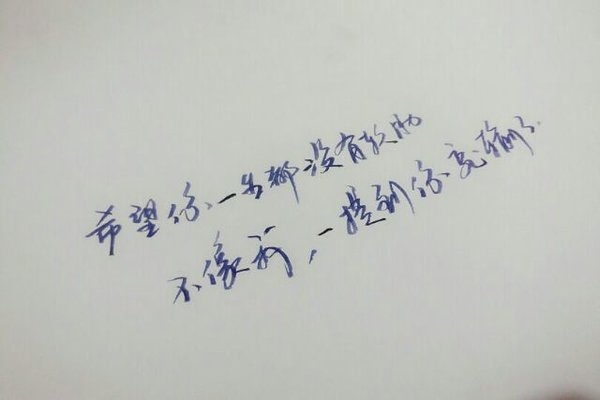 希望你一生都没有软肋
不像我，一提到你竟输了.